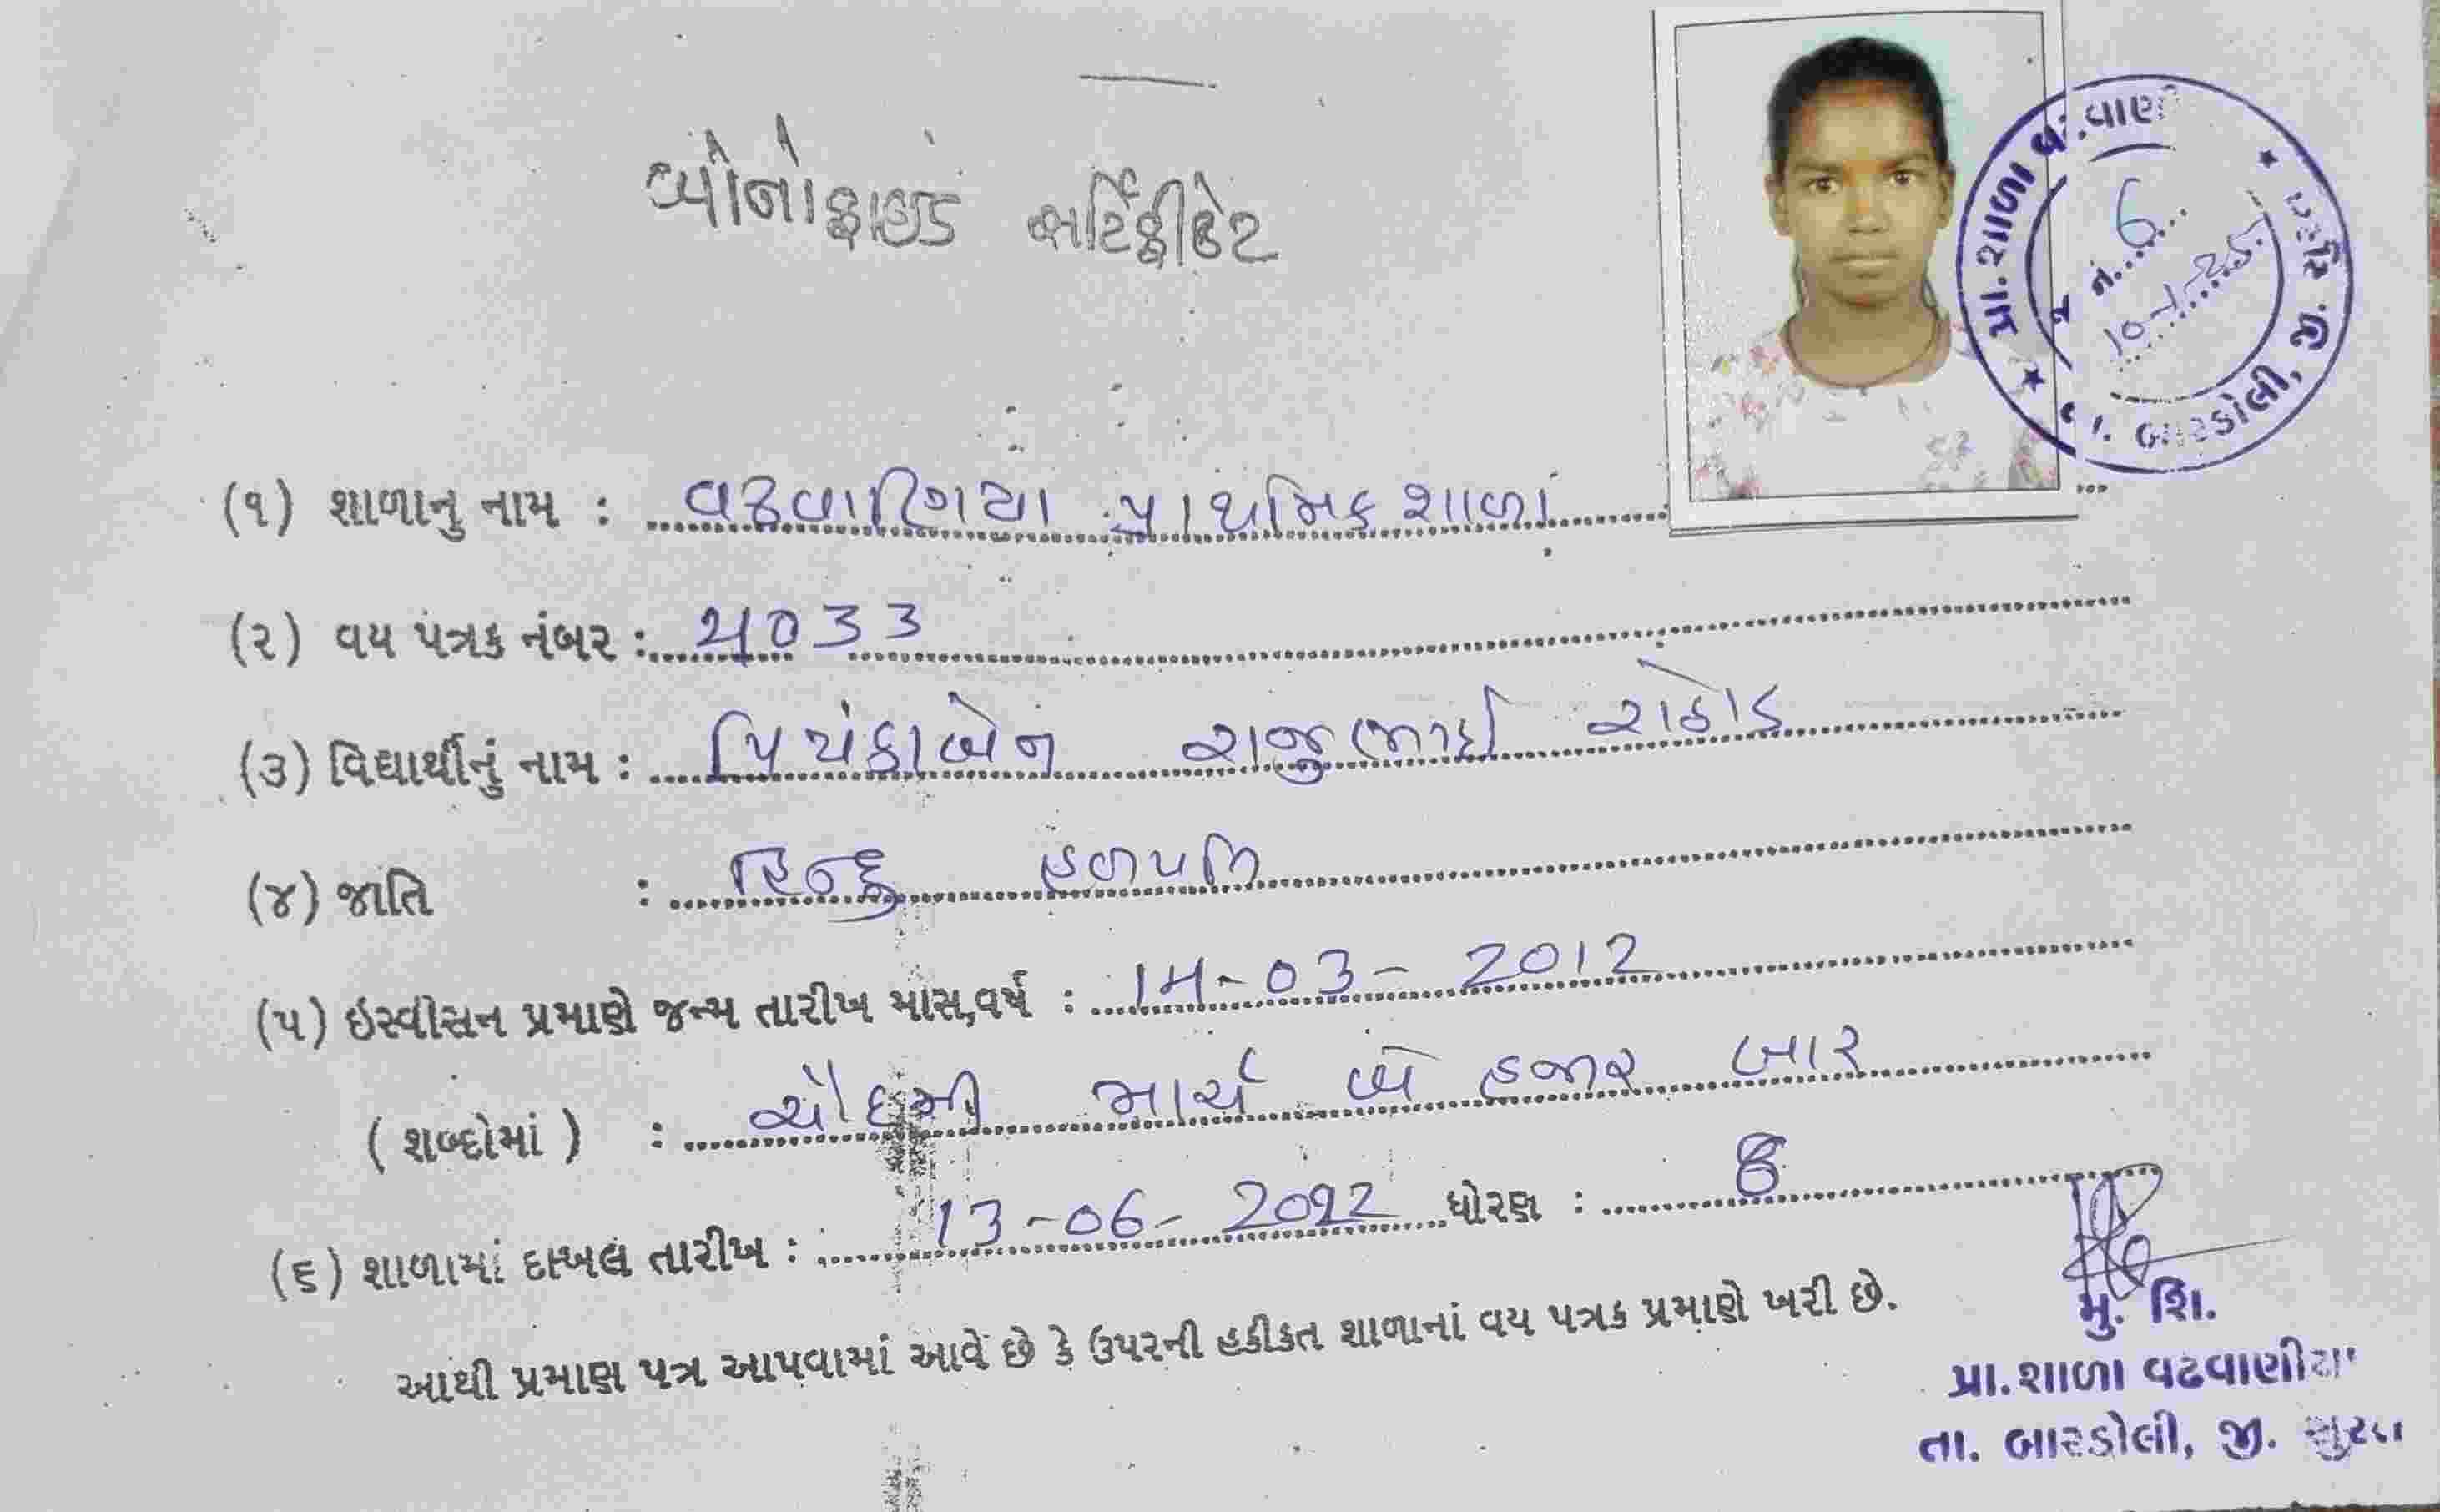 બોનોફાઇડ સર્ટિફીકેટ
પ્રા. શાળા
નં. 6
10-1-25
તા. બારડોલી, જી.
(૧) શાળાનુ નામ : વઢવાણિયા પ્રાથમિક શાળા
(૨) વય પત્રક નંબર : ૫૦૩૩
(૩) વિદ્યાર્થીનું નામ : પ્રિયંકાબેન રાજુભાઈ રાઠોડ
(૪) જાતિ : હિન્દુ હળપતિ
(૫) ઇસ્વીસન પ્રમાણે જન્મ તારીખ માસ,વર્ષ : 14-03-2012
( શબ્દોમાં ) : ચૌદમી માર્ચ બે હજાર બાર
(૬) શાળામાં દાખલ તારીખ : 13-06-2022 ધોરણ : 8
આથી પ્રમાણ પત્ર આપવામાં આવે છે કે ઉપરની હકીકત શાળાનાં વય પત્રક પ્રમાણે ખરી છે.
મુ. શિ.
પ્રા.શાળા વઢવાણીયા
તા. બારડોલી, જી. સુરત